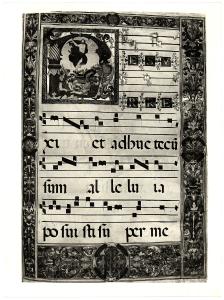 R E S U
R R E
xi et adhuc tecū
sum al le lu ia
po sui sti su per me